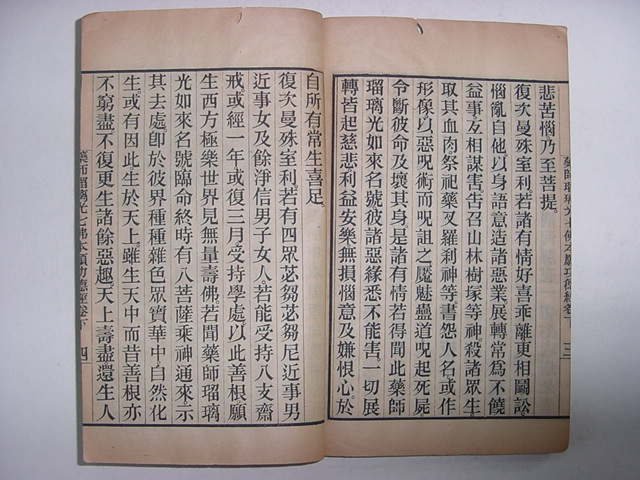 悲苦惱乃至菩提。
復次曼殊室利若諸有情好喜乖離更相鬬訟。
惱亂自他以身語意造諸惡業展轉常為不饒
益事互相謀害告召山林樹塚等神殺諸眾生。
取其血肉祭祀藥叉羅剎神等書怨人名或作
形像以惡呪術而呪詛之魘魅蠱道呪起死屍。
令斷彼命及壞其身是諸有情若得聞此藥師
瑠璃光如來名號彼諸惡緣悉不能害一切展
轉皆起慈悲利益安樂無損惱意及嫌恨心。於
藥師瑠璃光七佛本願功德經卷下 三
自所有常生喜足。
復次曼殊室利。若有四眾苾芻苾芻尼近事男
近事女及餘淨信男子女人。若能受持八支齋
戒。或經一年或復三月受持學處。以此善根願
生西方極樂世界見無量壽佛。若聞藥師瑠璃
光如來名號臨命終時有八菩薩乘神通來示
其去處。卽於彼界種種雜色眾寶華中自然化
生或有因此生於天上。雖生天中而昔善根亦
不窮盡。不復更生諸餘惡趣。天上壽盡還生人
藥師瑠璃光七佛本願功德經卷下 四